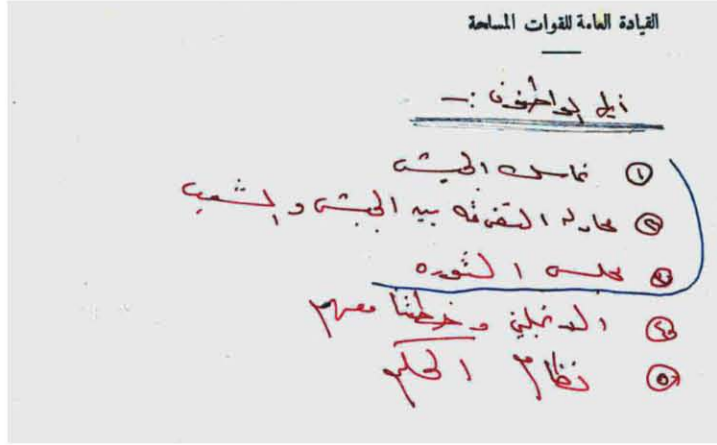 القيادة العامة للقوات المسلحة
أيها المواطنون :-
① تماسك الجيش
② محاولة التفرقة بين الجيش و الشعب
③ مجلس الثورة
④ الانجليز وخطتنا معهم
⑤ نظام الحكم